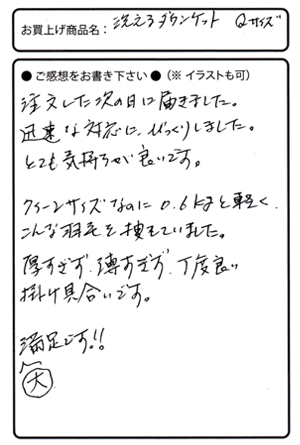 お買上げ商品名： 洗えるダウンケット Qサイズ
● ご感想をお書き下さい ●（※ イラストも可）
注文した次の日に届きました。
迅速な対応に、びっくりしました。
とても気持ちが良いです。
クィーンサイズなのに 0.6kgと軽く、
こんな羽毛を捜していました。
厚すぎず、薄すぎず、丁度良い
掛け具合いです。
満足です!!
大